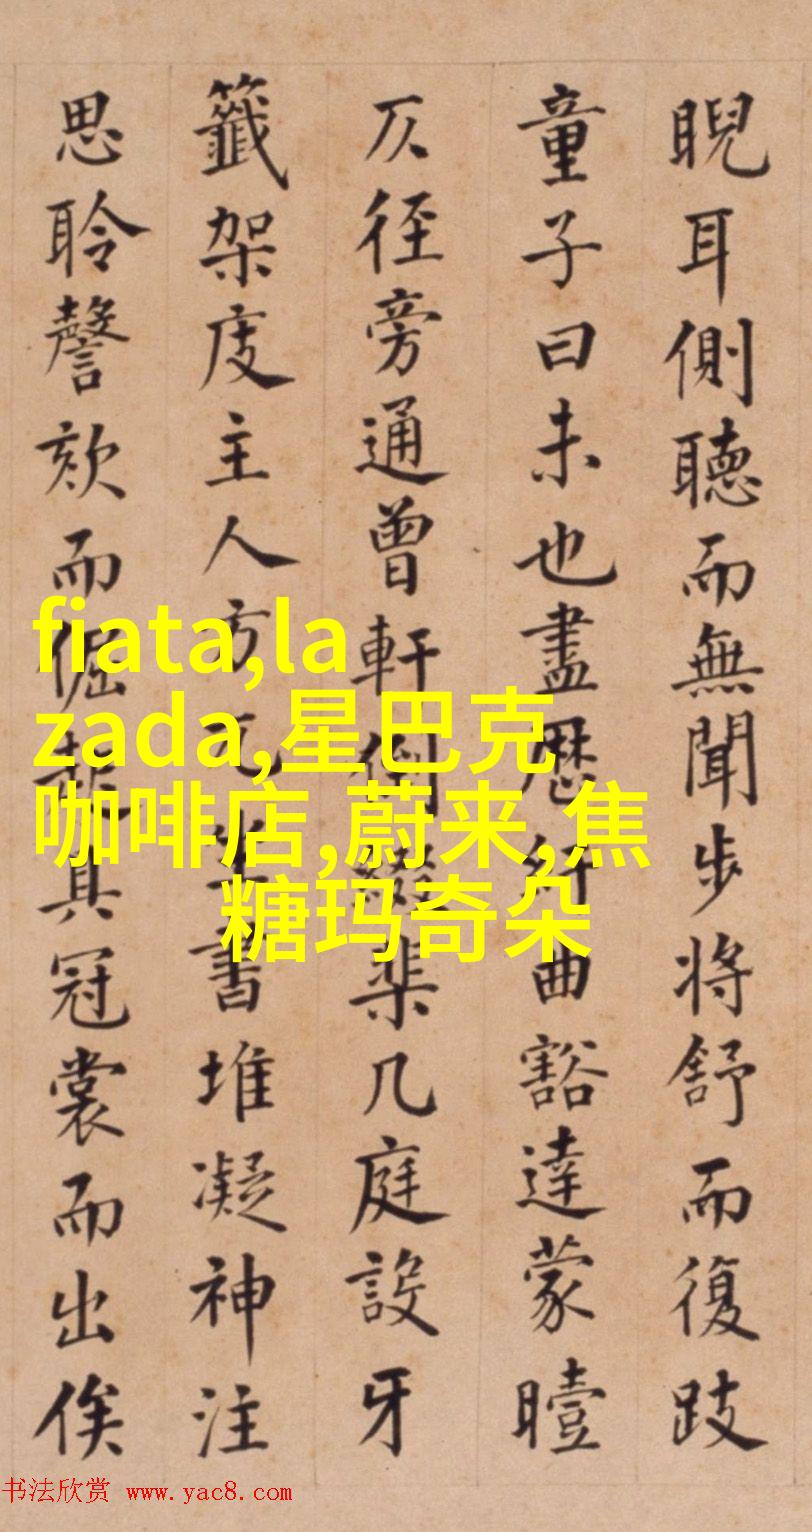 睨耳側聽而無聞步將舒而復跂
童子曰未也盡歷紆曲豁達蒙曀
仄徑旁通曾軒倒綴棐几庭設牙
籤架庋主人方兀坐書堆凝神注
思聆謦欬而倔起具冠裳而出俟
fiata,la
zada,星巴克
咖啡店,蔚来,焦
糖玛奇朵
书法欣赏 www.yac8.com